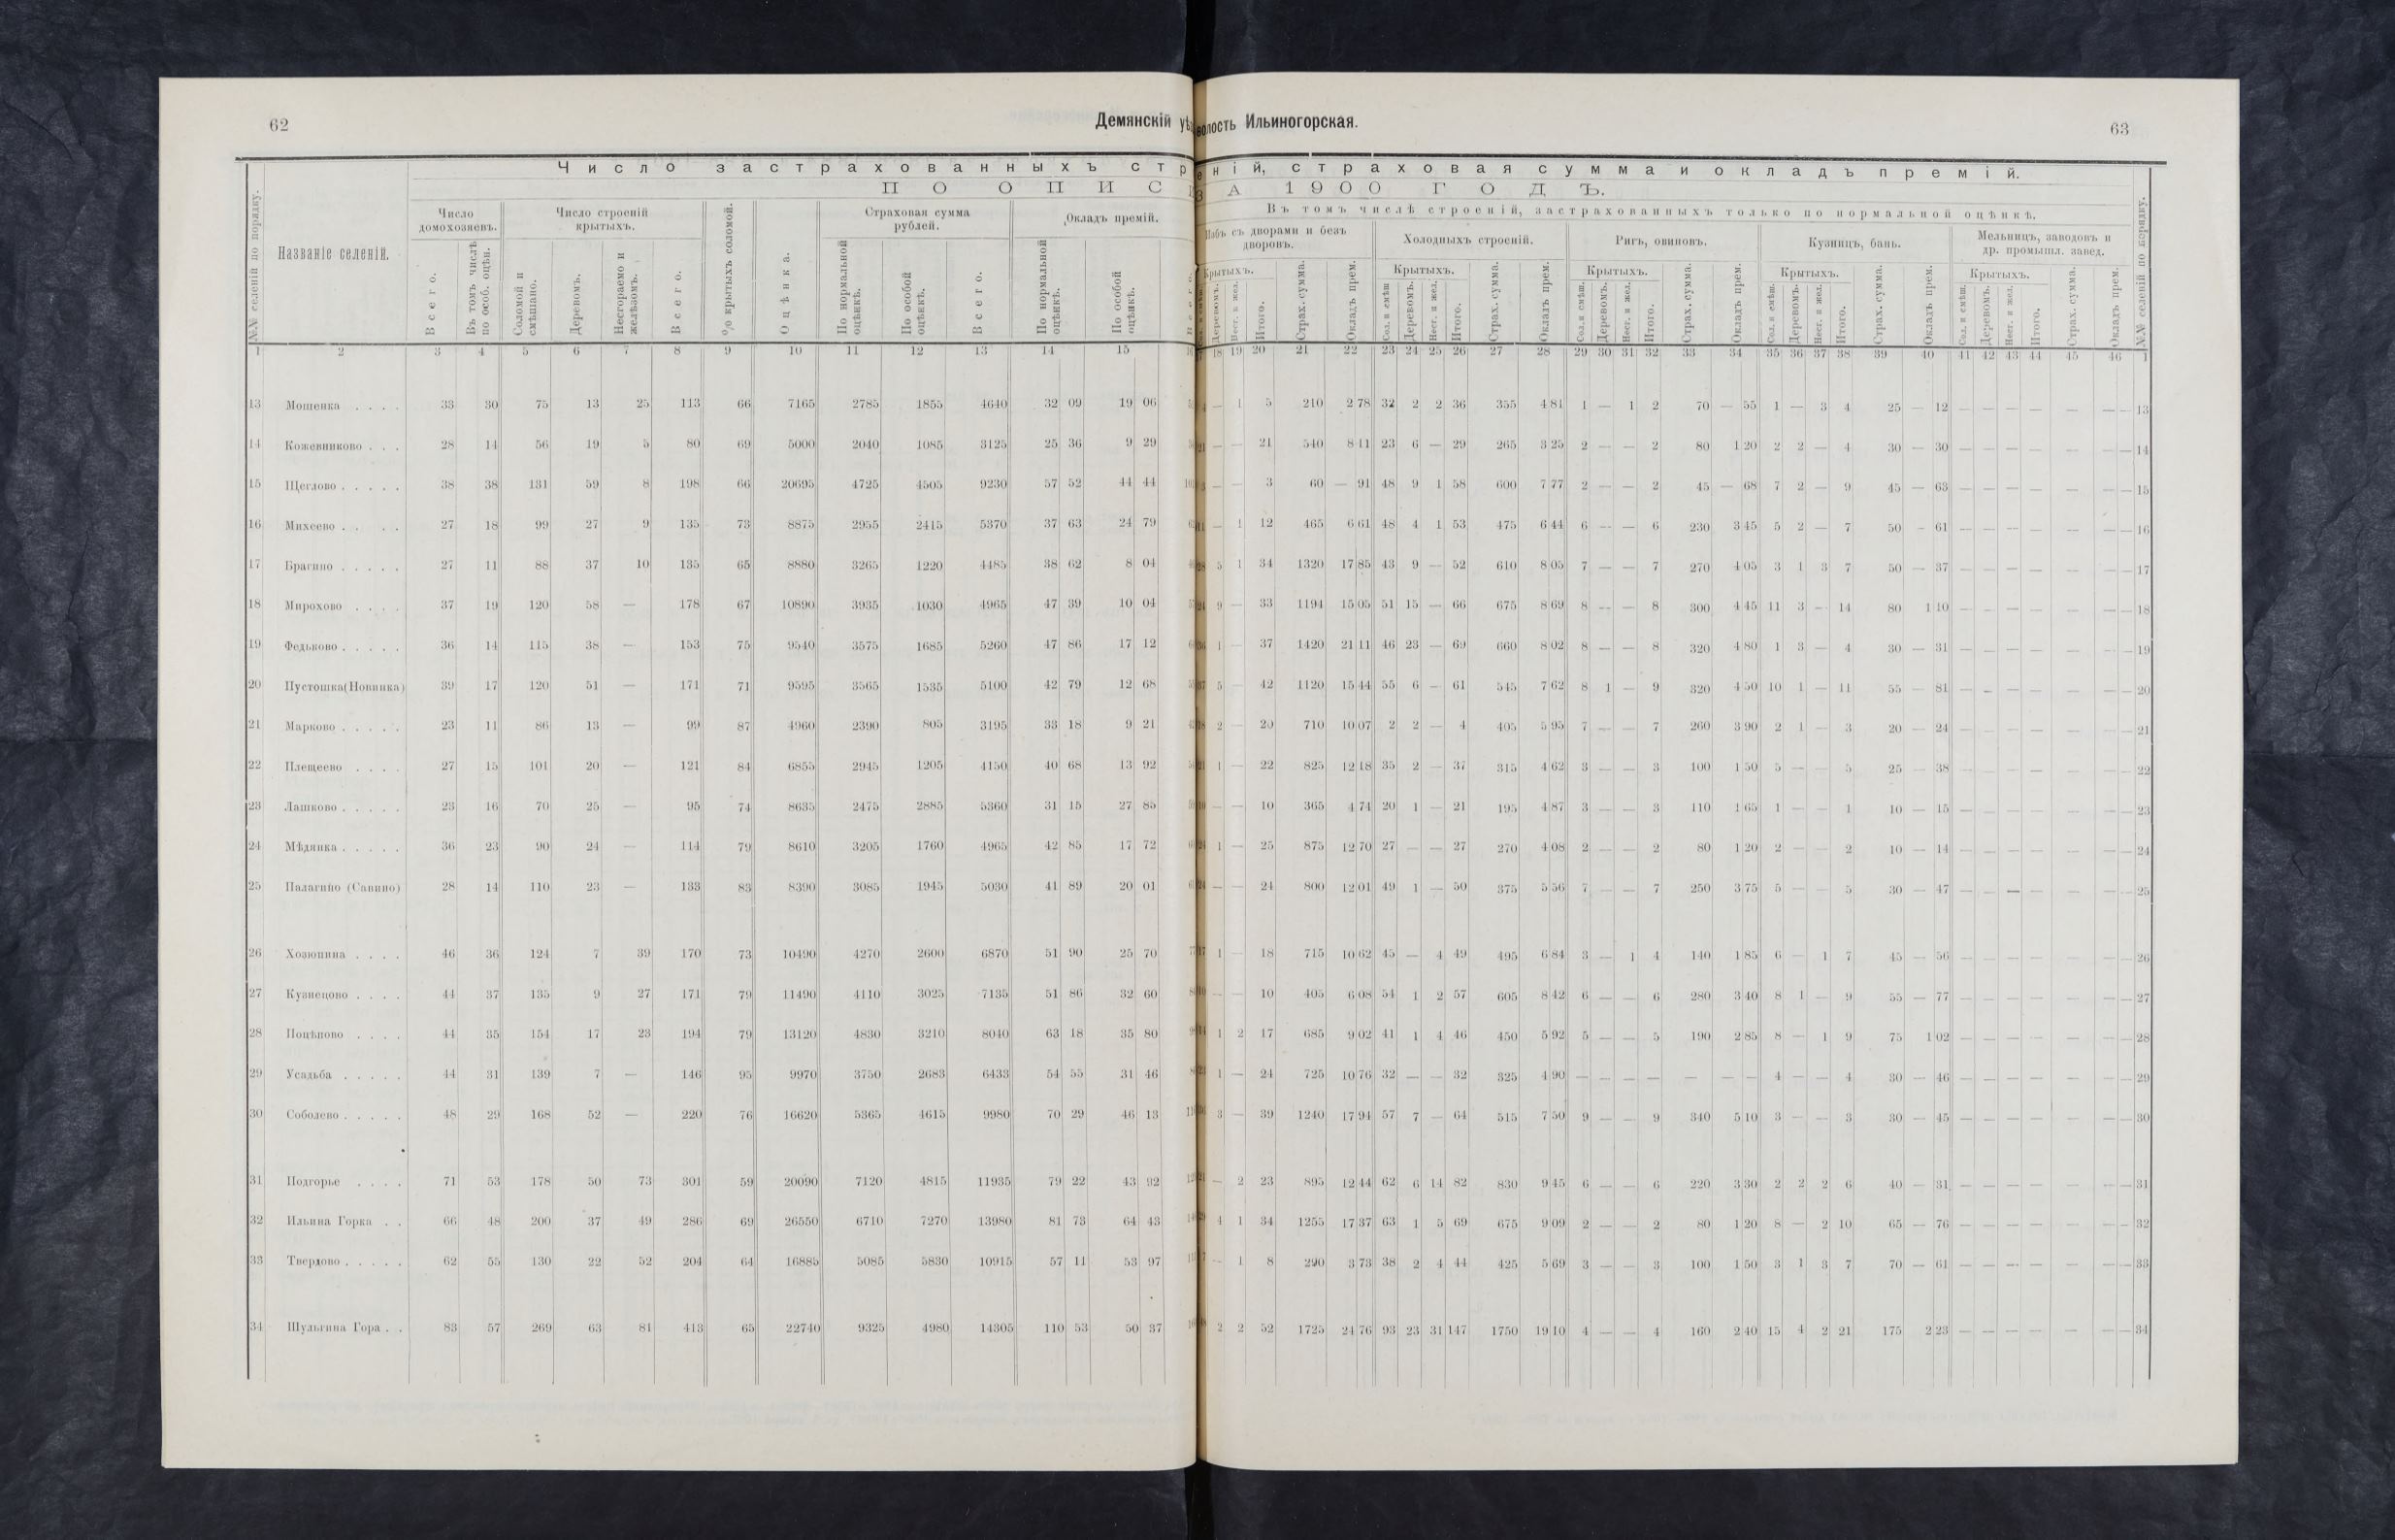 62
Демянскій уѣ
волость Ильиногорская.
63
Число застрахованныхъ стр
еній, страховая сумма и окладъ премій.
ПО ОПИС
ЗА 1900 ГОДЪ.
№№ селеній по порядку.
Названіе селеній.
Число домохозяевъ.
Всего.
Въ томъ числѣ по особ. оцѣн.
Число строеній крытыхъ.
Соломой и смѣшано.
Деревомъ.
Несгораемо и желѣзомъ.
Всего.
% крытыхъ соломой.
Оцѣнка.
Страховая сумма рублей.
По нормальной оцѣнкѣ.
По особой оцѣнкѣ.
Всего.
Окладъ премій.
По нормальной оцѣнкѣ.
По особой оцѣнкѣ.
Въ томъ числѣ строеній, застрахованныхъ только по нормальной оцѣнкѣ.
Избъ съ дворами и безъ дворовъ.
Крытыхъ.
Деревомъ.
Несг. и жел.
Итого.
Страх. сумма.
Окладъ прем.
Холодныхъ строеній.
Крытыхъ.
Сол. и смѣш
Деревомъ.
Несг. и жел.
Итого.
Страх. сумма.
Окладъ прем.
Ригъ, овиновъ.
Крытыхъ.
Сол. и смѣш.
Деревомъ.
Несг. и жел.
Итого.
Страх. сумма.
Окладъ прем.
Кузницъ, бань.
Крытыхъ.
Сол. и смѣш.
Деревомъ.
Несг. и жел.
Итого.
Страх. сумма.
Окладъ прем.
Мельницъ, заводовъ и др. промышл. завед.
Крытыхъ.
Сол. и смѣш.
Деревомъ.
Несг. и жел.
Итого.
Страх. сумма.
Окладъ прем.
№№ селеній по порядку.
1 2 3 4 5 6 7 8 9 10 11 12 13 14 15 18 19 20 21 22 23 24 25 26 27 28 29 30 31 32 33 34 35 36 37 38 39 40 41 42 43 44 45 46 1
13 Мошенка . . . . 33 30 75 13 25 113 66 7165 2785 1855 4640 32 09 19 06 — 1 5 210 2 78 32 2 2 36 355 4 81 1 — 1 2 70 — 55 1 — 3 4 25 — 12 — — — — — — — 13
14 Кожевниково . . . 28 14 56 19 5 80 69 5000 2040 1085 3125 25 36 9 29 — — 21 540 8 11 23 6 — 29 265 3 25 2 — — 2 80 1 20 2 2 — 4 30 — 30 — — — — — — — 14
15 Щеглово . . . . . 38 38 131 59 8 198 66 20695 4725 4505 9230 57 52 44 44 — — 3 60 — 91 48 9 1 58 600 7 77 2 — — 2 45 — 68 7 2 — 9 45 — 63 — — — — — — — 15
16 Михеево . . . . 27 18 99 27 9 135 73 8875 2955 2415 5370 37 63 24 79 — 1 12 465 6 61 48 4 1 53 475 6 44 6 — — 6 230 3 45 5 2 — 7 50 — 61 — — — — — — — 16
17 Брагино . . . . . 27 11 88 37 10 135 65 8880 3265 1220 4485 38 62 8 04 5 1 34 1320 17 85 43 9 — 52 610 8 05 7 — — 7 270 4 05 3 1 3 7 50 — 37 — — — — — — — 17
18 Мирохово . . . . 37 19 120 58 — 178 67 10890 3935 1030 4965 47 39 10 04 9 — 33 1194 15 05 51 15 — 66 675 8 69 8 — — 8 300 4 45 11 3 — 14 80 1 10 — — — — — — — 18
19 Федьково . . . . . 36 14 115 38 — 153 75 9540 3575 1685 5260 47 86 17 12 1 — 37 1420 21 11 46 23 — 69 660 8 02 8 — — 8 320 4 80 1 3 — 4 30 — 31 — — — — — — — 19
20 Пустошка(Новинка) 39 17 120 51 — 171 71 9595 3565 1535 5100 42 79 12 68 5 — 42 1120 15 44 55 6 — 61 545 7 62 8 1 — 9 320 4 50 10 1 — 11 55 — 81 — — — — — — — 20
21 Марково . . . . . 23 11 86 13 — 99 87 4960 2390 805 3195 33 18 9 21 2 — 20 710 10 07 2 2 — 4 405 5 95 7 — — 7 260 3 90 2 1 — 3 20 — 24 — — — — — — — 21
22 Плещеево . . . . 27 15 101 20 — 121 84 6855 2945 1205 4150 40 68 13 92 1 — 22 825 12 18 35 2 — 37 315 4 62 3 — — 3 100 1 50 5 — — 5 25 — 38 — — — — — — — 22
23 Лашково . . . . . 23 16 70 25 — 95 74 8635 2475 2885 5360 31 15 27 85 — — 10 365 4 74 20 1 — 21 195 4 87 3 — — 3 110 1 65 1 — — 1 10 — 15 — — — — — — — 23
24 Мѣдянка . . . . . 36 23 90 24 — 114 79 8610 3205 1760 4965 42 85 17 72 1 — 25 875 12 70 27 — — 27 270 4 08 2 — — 2 80 1 20 2 — — 2 10 — 14 — — — — — — — 24
25 Палагино (Савино) 28 14 110 23 — 133 83 8390 3085 1945 5030 41 89 20 01 — — 24 800 12 01 49 1 — 50 375 5 56 7 — — 7 250 3 75 5 — — 5 30 — 47 — — — — — — — 25
26 Хозюпина . . . . 46 36 124 7 39 170 73 10490 4270 2600 6870 51 90 25 70 1 — 18 715 10 62 45 — 4 49 495 6 84 3 — 1 4 140 1 85 6 — 1 7 45 — 56 — — — — — — — 26
27 Кузнецово . . . . 44 37 135 9 27 171 79 11490 4110 3025 7135 51 86 32 60 — — 10 405 6 08 54 1 2 57 605 8 42 6 — — 6 280 3 40 8 1 — 9 55 — 77 — — — — — — — 27
28 Поцѣпово . . . . 44 35 154 17 23 194 79 13120 4830 3210 8040 63 18 35 80 1 2 17 685 9 02 41 1 4 46 450 5 92 5 — — 5 190 2 85 8 — 1 9 75 1 02 — — — — — — — 28
29 Усадьба . . . . . 44 31 139 7 — 146 95 9970 3750 2683 6433 54 55 31 46 1 — 24 725 10 76 32 — — 32 325 4 90 — — — — — — — 4 — — 4 30 — 46 — — — — — — — 29
30 Соболево . . . . . 48 29 168 52 — 220 76 16620 5365 4615 9980 70 29 46 13 3 — 39 1240 17 94 57 7 — 64 515 7 50 9 — — 9 340 5 10 3 — — 3 30 — 45 — — — — — — — 30
31 Подгорье . . . . 71 53 178 50 73 301 59 20090 7120 4815 11935 79 22 43 92 — 2 23 895 12 44 62 6 14 82 830 9 45 6 — — 6 220 3 30 2 2 2 6 40 — 31 — — — — — — — 31
32 Ильина Горка . . 66 48 200 37 49 286 69 26550 6710 7270 13980 81 73 64 43 4 1 34 1255 17 37 63 1 5 69 675 9 09 2 — — 2 80 1 20 8 — 2 10 65 — 76 — — — — — — — 32
33 Твердово . . . . . 62 55 130 22 52 204 64 16885 5085 5830 10915 57 11 53 97 — 1 8 290 3 73 38 2 4 44 425 5 69 3 — — 3 100 1 50 3 1 3 7 70 — 61 — — — — — — — 33
34 Шульгина Гора . . 83 57 269 63 81 413 65 22740 9325 4980 14305 110 53 50 37 2 2 52 1725 24 76 93 23 31 147 1750 19 10 4 — — 4 160 2 40 15 4 2 21 175 2 23 — — — — — — — 34